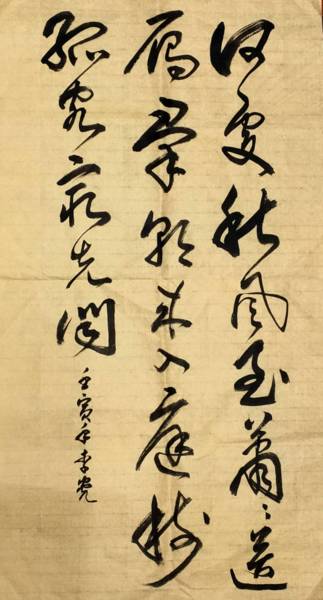 何處秋風至蕭〻送
雁羣朝來入庭樹
孤客最先聞
壬寅年李